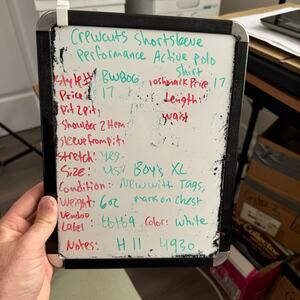 Crewcuts Shortsleeve
Performance Active Polo
Shirt
Style #: BW806 Poshmark Price: 17
Price: 17 Length:
Pit 2 pit: Waist
Shoulder 2 Hem:
Sleeve from pit:
Stretch: yes
Size: US: Boy's XL
Condition: New with Tags,
Weight: 6oz mark on chest
Vendoo
Label Color: White
Notes: H11 4930